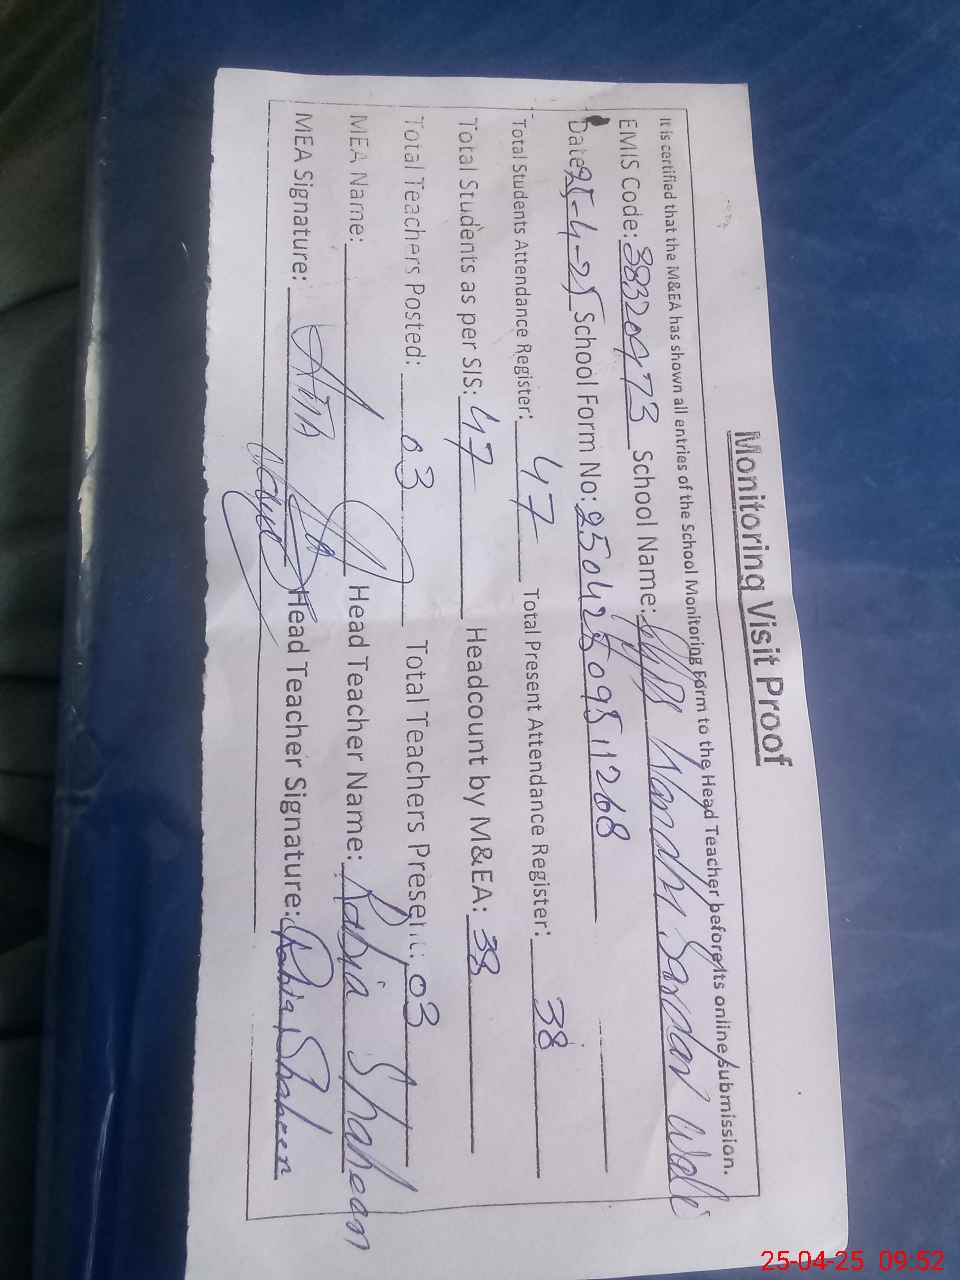 Monitoring Visit Proof
It is certified that the M&EA has shown all entries of the School Monitoring Form to the Head Teacher before its online submission.
EMIS Code: 38320473 School Name: Sardar Wali
Date: 25-4-25 School Form No: 25042509511268
Total Students Attendance Register: 47 Total Present Attendance Register: 38
Total Students as per SIS: 47 Headcount by M&EA: 38
Total Teachers Posted: 03 Total Teachers Present: 03
MEA Name: Head Teacher Name: Rabia Shaheen
MEA Signature: Head Teacher Signature: Rabia Shaheen
25-04-25 09:52